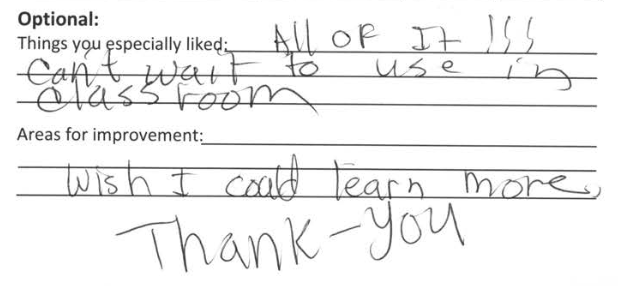 Optional:
Things you especially liked: All OF It !!!
Can't wait to use in
classroom
Areas for improvement:
Wish I could learn more,
Thank-you